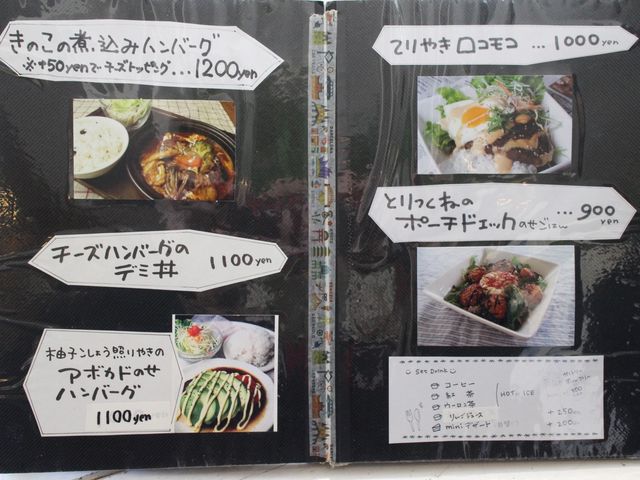 きのこの煮込みハンバーグ
※+50yenでチーズトッピング...1200yen
チーズハンバーグの
デミ丼 1100yen
柚子こしょう照りやきの
アボカドのせ
ハンバーグ
1100yen
てりやきロコモコ ...1000yen
とりつくねの
ポーチドエッグのせごはん ...900yen
Set Drink
コーヒー
紅茶
ウーロン茶
HOT or ICE
りんごジュース +250
miniデザート +200